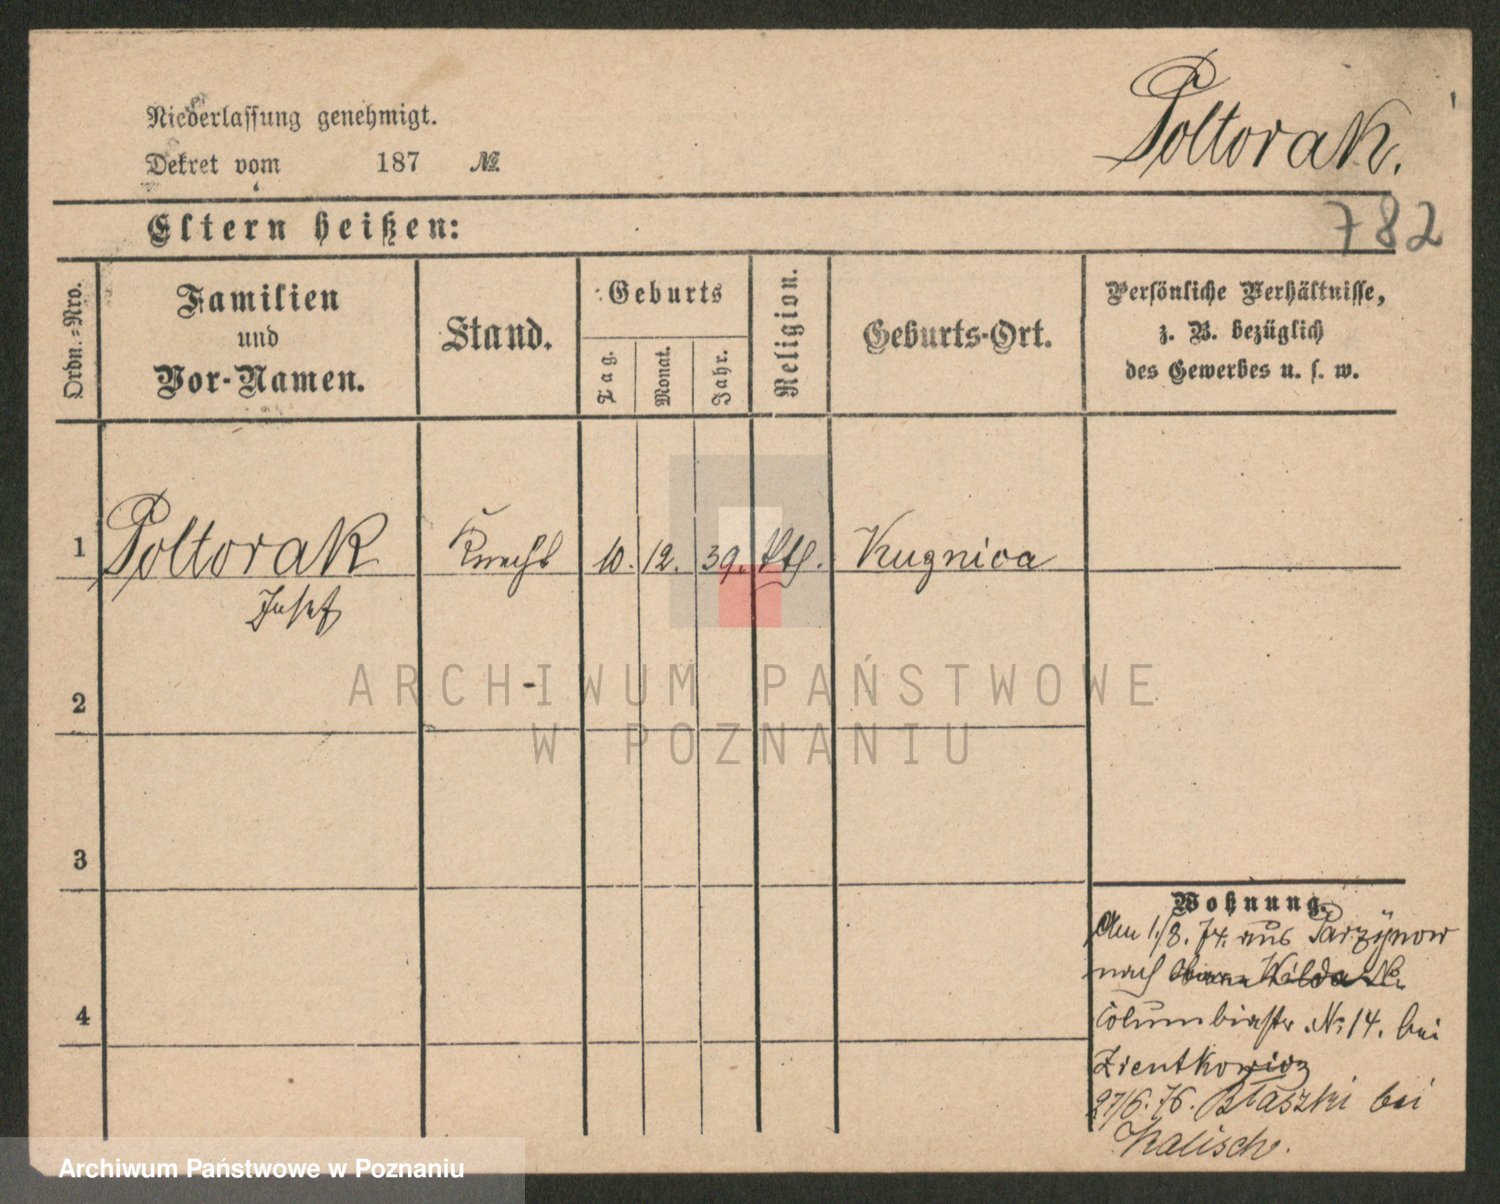 Niederlassung genehmigt.
Dekret vom 187 №
Poltorak.
782
Eltern heißen:
Ordn.-Nro.
Familien
und
Vor-Namen.
Stand.
Geburts
Tag.
Monat.
Jahr.
Religion.
Geburts-Ort.
Persönliche Verhältnisse,
z. B. bezüglich
des Gewerbes u. s. w.
1 Poltorak Knecht 10. 12. 39. kth. Kugnica
Josef
2
3
4
Wohnung.
Am 1./8. 74. aus Parzynow
nach Wilda No
Columbiastr. No 14. bei
Zientkowicz
27/6. 76. Błaszki bei
Kalisch.
ARCHIWUM PAŃSTWOWE
W POZNANIU
Archiwum Państwowe w Poznaniu